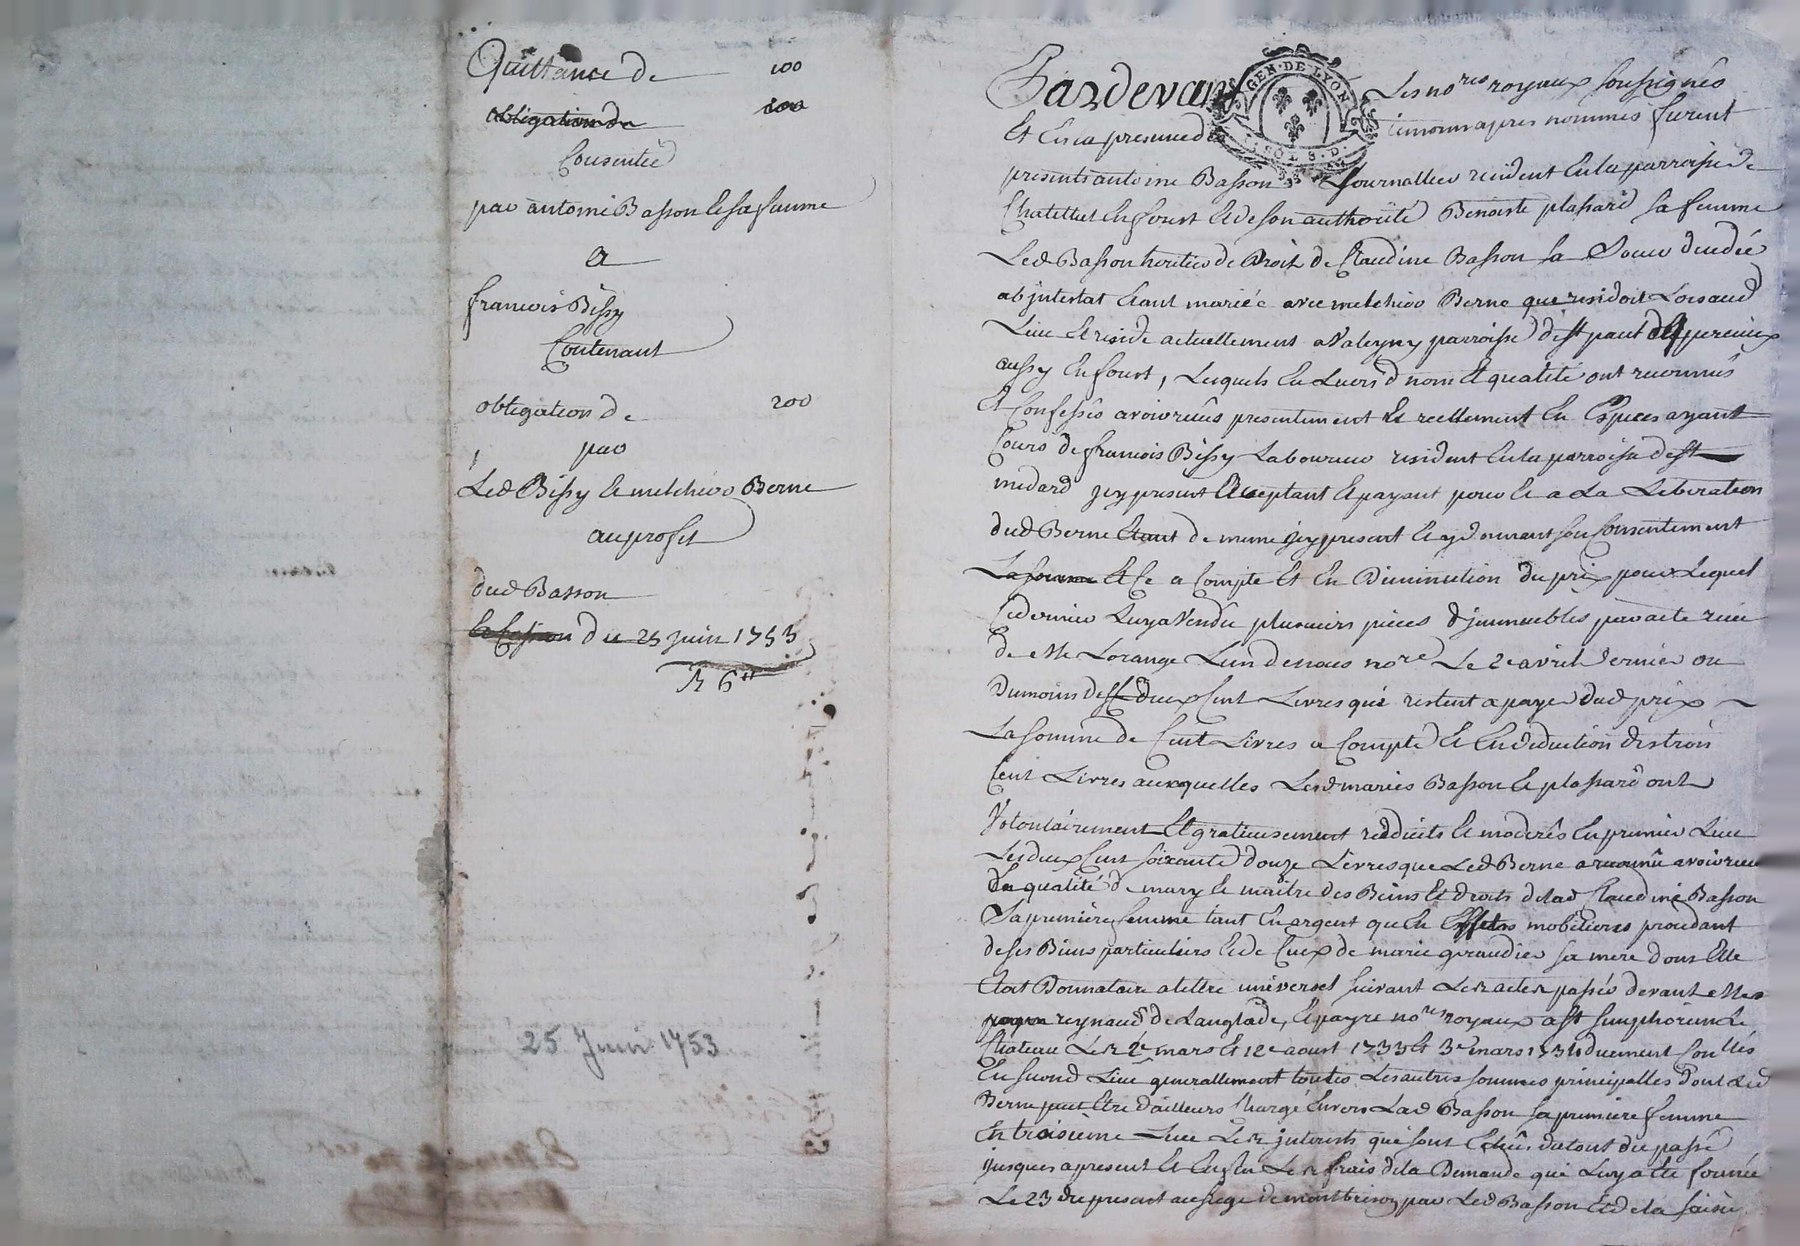 Quittance de 100
obligation de 100
Consentie
par antoine Basson et sa femme
A
francois Bissy
Contenant
obligation de 200
par
Led Bissy et melchior Berne
au profit
dud Basson
du 25 juin 1753
R 6#
25 Juin 1753
Pardevant Les nores royaux soussignés
GEN · DE · LYON
2 SOLS . D .
Et En la presence des temoins apres nommés furent
presents antoine Basson Journallier resident En la parroisse de
Chatellus En forest Et de son authorité Benoiste plassard sa femme
Led Basson heritier de Droit de Claudine Basson sa Soeur decedée
abjntestat Etant mariée avec melchior Berne que residoit Lors aud
Lieu Et reside actuellement a Valegny parroisse de st paul
aussy En forest, Lesquels En Leursd nom Et qualité ont reconnus
Et Confessés avoir reçûs presentement Et reellement En Especes ayant
Cours de francois Bissy Laboureur resident En la parroisse de st
medard jcy present Acceptant Et payant pour Et a La Liberation
dud Berne Etant de meme jcy present Et y donnant son Consentement
La somme Et Ce a Compte Et En Diminution du prix pour Lequel
Ce dernier Luy a Vendû plusieurs pieces d'jmmeubles par acte reçu
de Me Lorange L'un de nous nore Le 2e avril dernier ou
Dumoins des deux Cent Livres qui restent a payer dud prix
La somme de Cent Livres a Compte Et En deduction des trois
Cent Livres auxquelles Lesd mariés Basson Et plassard ont
Volontairement Et gratieusement reduits Et moderés En premier Lieu
Les deux Cent soixante douze Livres que Led Berne a reconnû avoir reçu
En qualité de mary Et maitre des Biens Et droits de lad Claudine Basson
Sa premiere femme tant En argent qu'En Effets mobiliers procedant
de ses Biens particuliers Et de Ceux de marie giraudier sa mere dont Elle
Etoit Donnataire a tittre universel suivant Les actes passés devant Mes
reynaud de Langlade, Et payre nores royaux a st simphorien Le
Chateau Les 2e mars Et 12e aoust 1733 Et 3e mars 1734 duement Conllés
En second Lieu generallement toutes Les autres sommes principalles dont Led
Berne peut Etre d'ailleurs Chargé Envers Lad Basson sa premiere femme
En troisieme Lieu Les jnterests qui sont Echûs du tout du passé
jusques a present Et Enfin Les frais de la Demande qui Luy a eté formée
Le 23 du present au siege de montbrison par Led Basson Et de la saisie